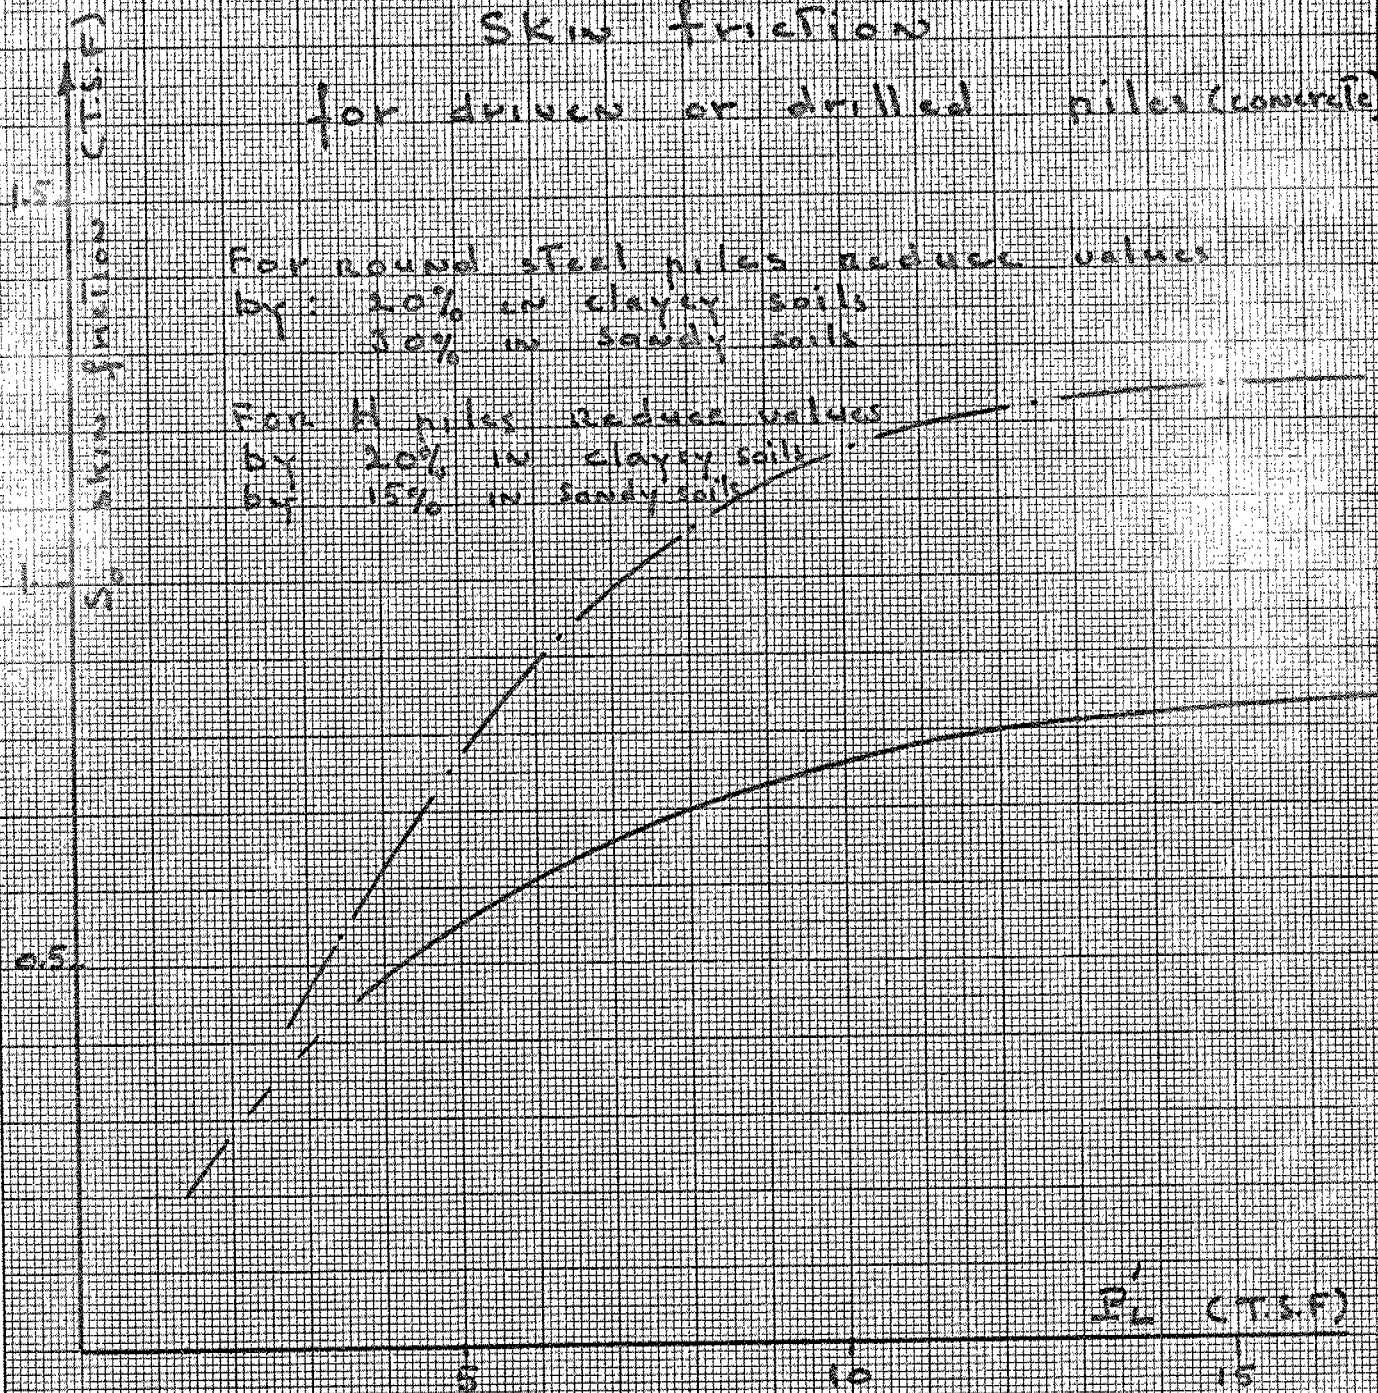 Skin friction
for driven or drilled piles (concrete)
For round steel piles reduce values
by: 20% in clayey soils
30% in sandy soils
For H piles reduce values
by 20% in clayey soils
by 15% in sandy soils
skin friction (T.S.F)
1.5
1.
0.5
P'L (T.S.F)
5
10
15